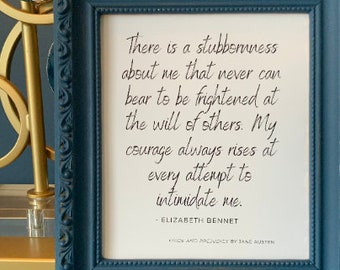 There is a stubbornness
about me that never can
bear to be frightened at
the will of others. My
courage always rises at
every attempt to
intimidate me.
- ELIZABETH BENNET
PRIDE AND PREJUDICE BY JANE AUSTEN